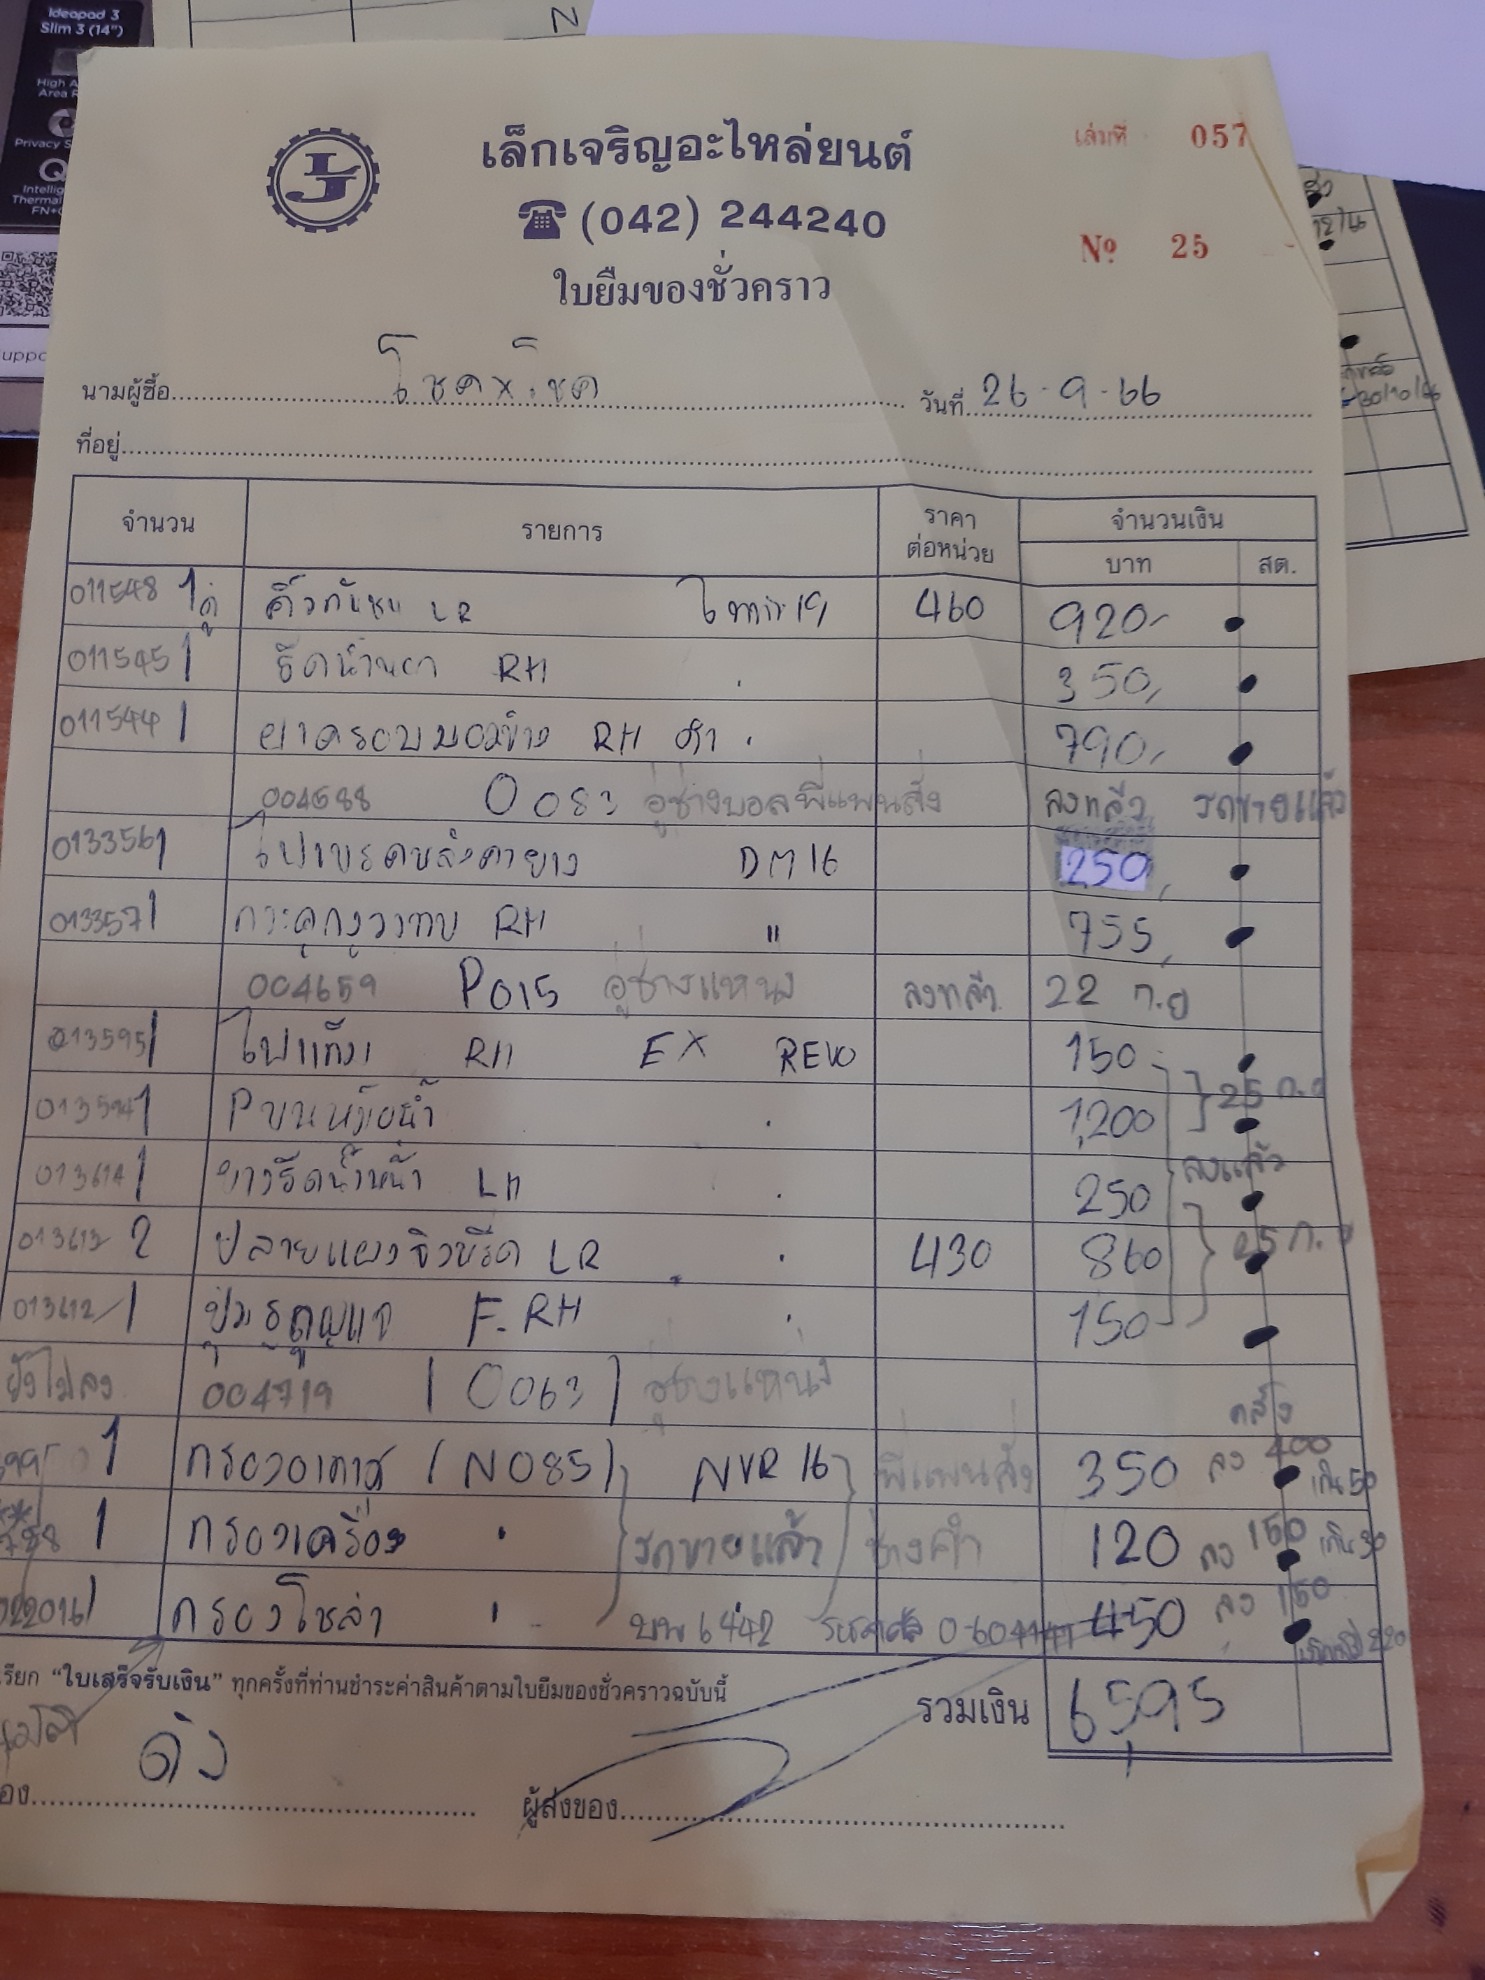 Ideapad 3
Slim 3 (14")
High
Area
Privacy
Intellig
Thermal
FN+
N
เล็กเจริญอะไหล่ยนต์
เล่มที่ 057
(042) 244240
Nº 25
ใบยืมของชั่วคราว
นามผู้ซื้อ โชคxโชค วันที่ 26-9-66
ที่อยู่
จำนวน รายการ ราคาต่อหน่วย จำนวนเงิน
บาท สต.
011548 1คู่ คิ้วกันชน LR ไทเกอร์ 460 920
011545 1 RH 350
011544 1 ฝาครอบมองข้าง RH ดำ 790
004588 O083 อู่ช่างบอลพี่แพนสั่ง ลงแล้ว รถขายแล้ว
013356 1 ไฟเบรคหลังคายาง DM16 250
013357 1 RH " 755
004659 P015 อู่ช่างแหน่ง ลงแล้ว 22 ก.ย
013595 1 ไฟแก้ม RH EX REVO 150
013594 1 Pบนหม้อน้ำ 1,200 25 ก.ย
013614 1 ยางรีดน้ำหน้า LH 250 ลงแล้ว
013613 2 LR 430 860 25 ก.ย
013612 1 F-RH 150
ยังไม่ลง 004719 (O063) อู่ช่างแหน่ง
1 กรองอากาศ (N085) NVR 16 พี่แพนสั่ง 350 ลง 400 เกิน 50
1 กรองเครื่อง รถขายแล้ว ช่างคำ 120 ลง 150 เกิน 30
022016 1 กรองโซล่า บน 6442 450 ลง 150
เรียก “ใบเสร็จรับเงิน” ทุกครั้งที่ท่านชำระค่าสินค้าตามใบยืมของชั่วคราวฉบับนี้
รวมเงิน 6,595
ผู้ส่งของ